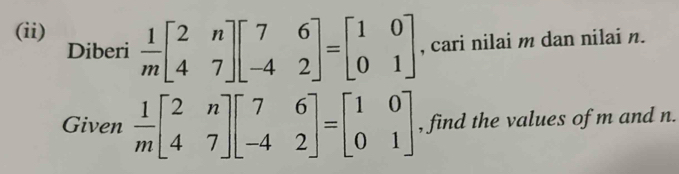 (ii)
Diberi $\frac{1}{m}\begin{bmatrix} 2 & n \\ 4 & 7 \end{bmatrix}\begin{bmatrix} 7 & 6 \\ -4 & 2 \end{bmatrix}=\begin{bmatrix} 1 & 0 \\ 0 & 1 \end{bmatrix}$, cari nilai m dan nilai n.
Given $\frac{1}{m}\begin{bmatrix} 2 & n \\ 4 & 7 \end{bmatrix}\begin{bmatrix} 7 & 6 \\ -4 & 2 \end{bmatrix}=\begin{bmatrix} 1 & 0 \\ 0 & 1 \end{bmatrix}$, find the values of m and n.